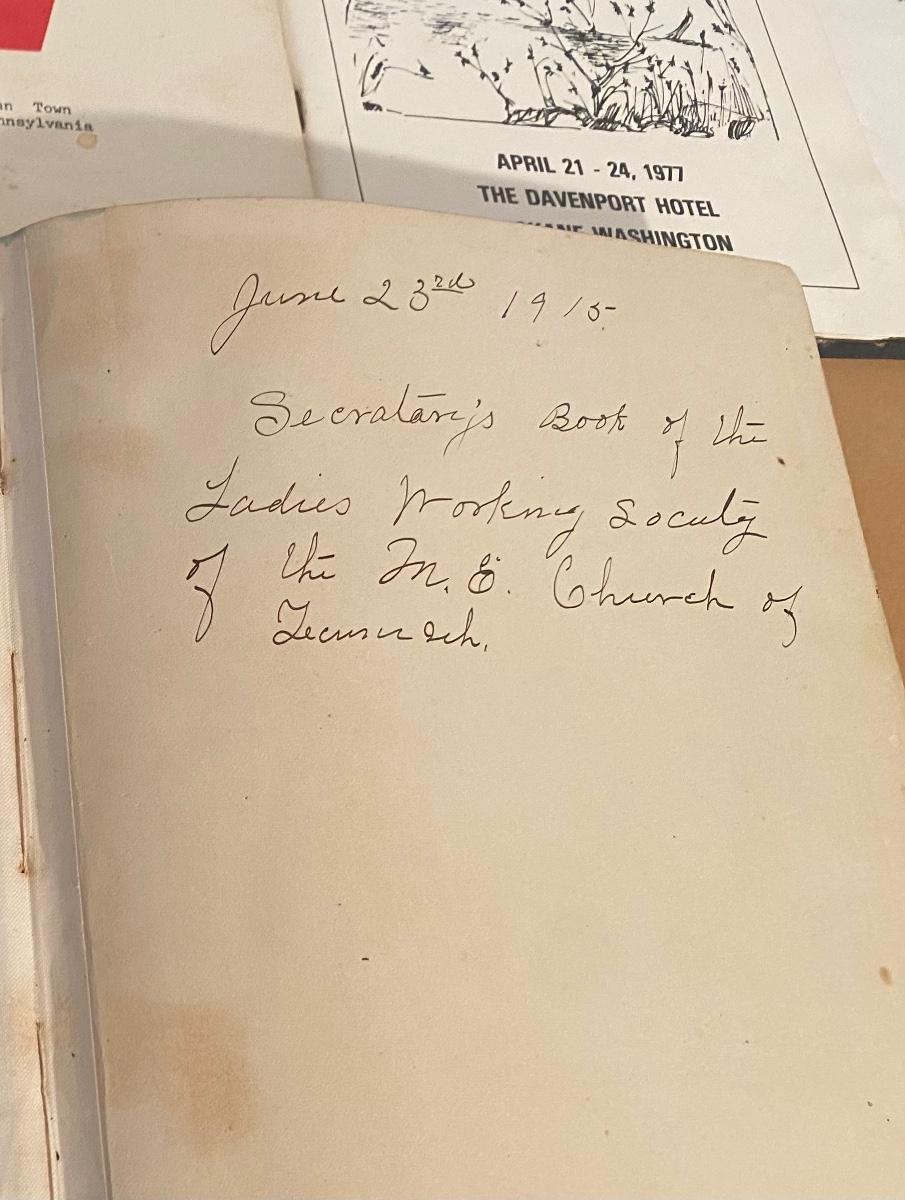 Town
APRIL 21 - 24, 1977
THE DAVENPORT HOTEL
WASHINGTON
June 23rd 1915
Secratary's Book of the
Ladies Working Society
of the M. E. Church of
Tecumseh.